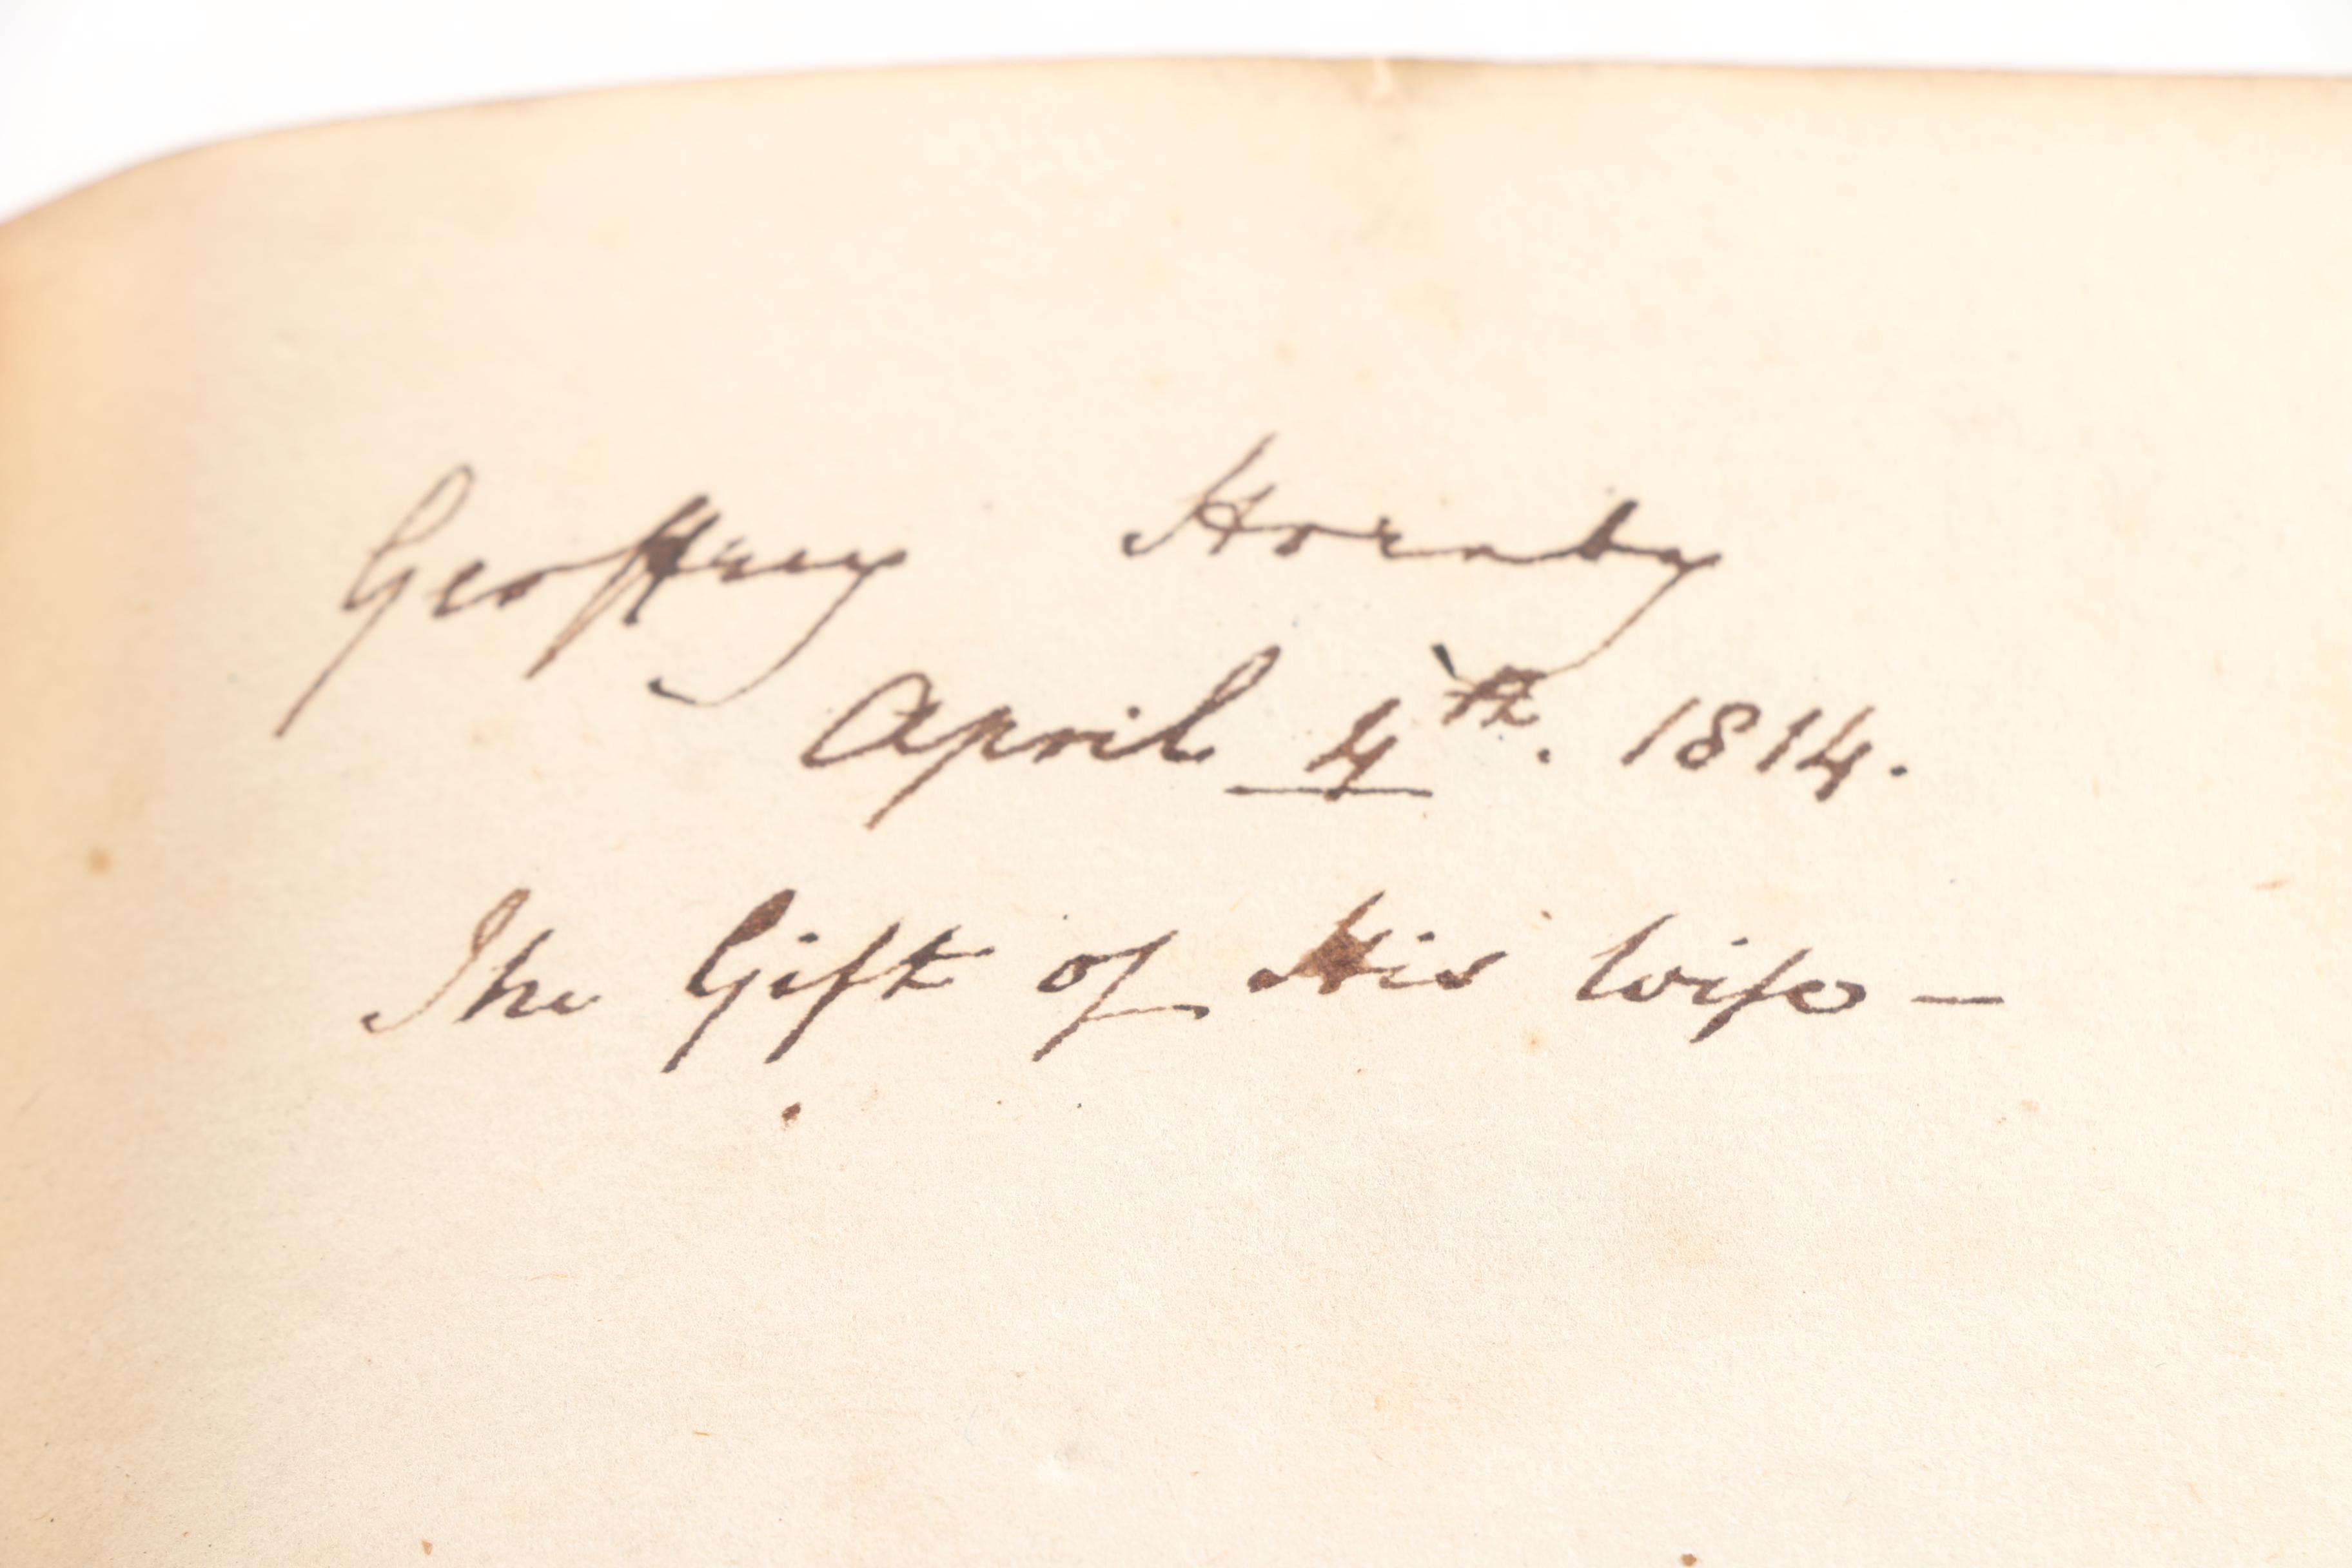 Geoffrey Hornby
April 4th. 1814.
The Gift of His Wife —